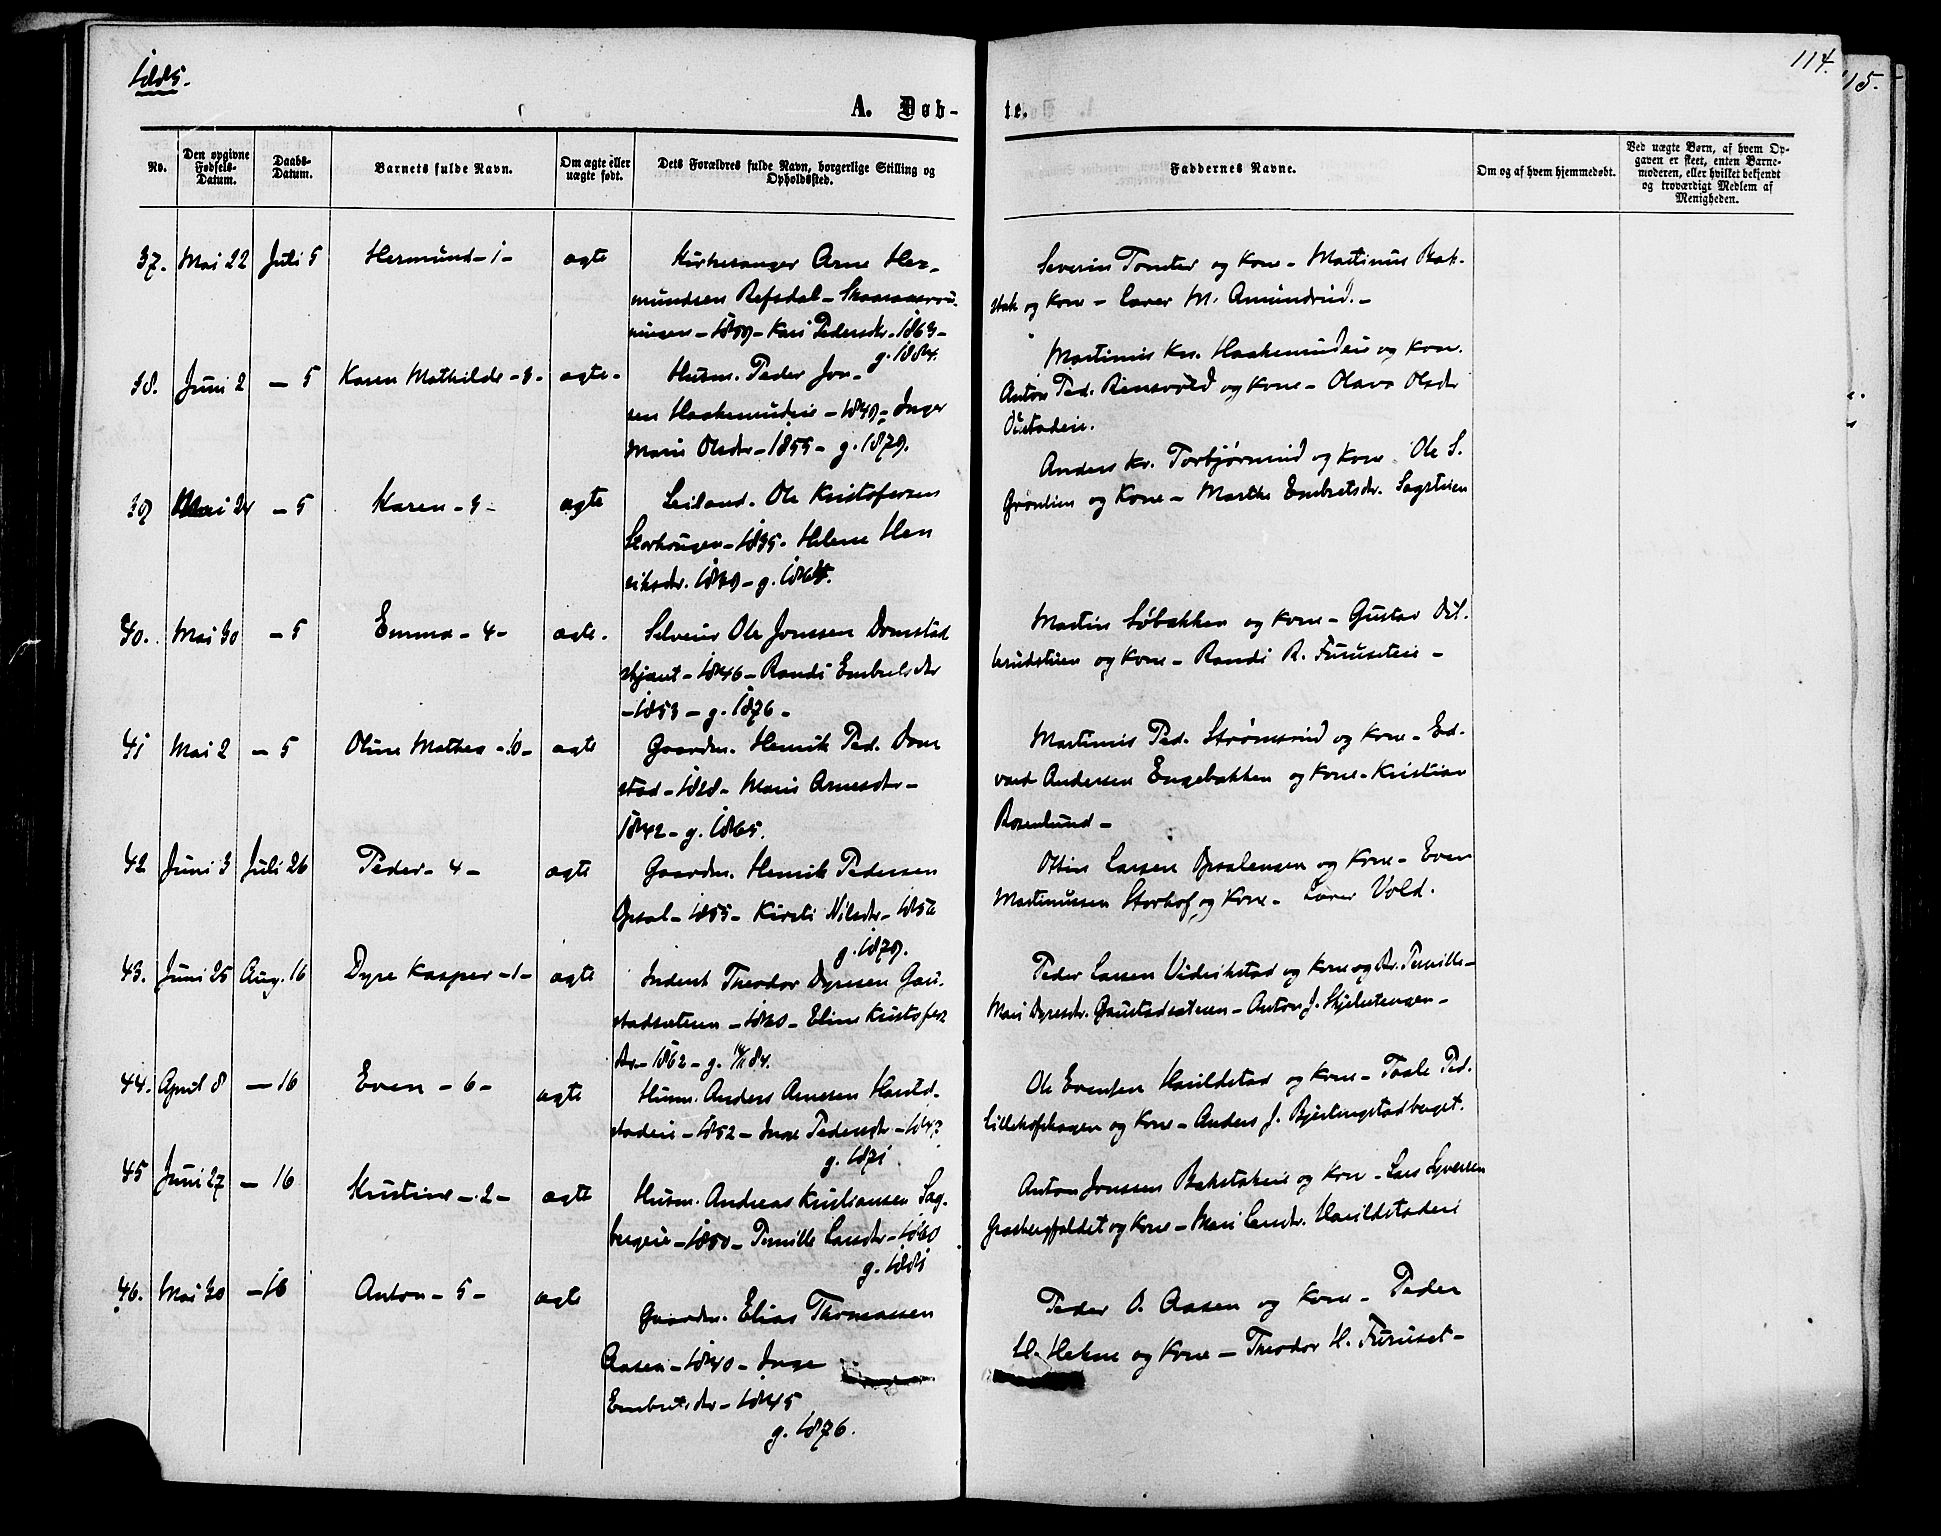 1885.
114.
115.
A. Døb-
te.
No.
Den opgivne Fødsels-Datum.
Daabs-Datum.
Barnets fulde Navn.
Om ægte eller uægte født.
Dets Forældres fulde Navn, borgerlige Stilling og Opholdssted.
Faddernes Navne.
Om og af hvem hjemmedøbt.
Ved uægte Børn, af hvem Op-
gaven er skeet, enten Barne-
moderen, eller hvilket bekjendt
og troværdigt Medlem af
Menigheden.
37. Mai 22 Juli 5 Hermund - 1 - ægte
Kirkesanger Arne Her-
mundsen Refsdal -
1859 - Kari Pedersdr. 1863 -
g. 1884.
Severin Tomter og Kone - Martinus Bak-
stak og Kone - Lærer M. Amundrud. -
38. Juni 2 - 5 Karen Mathilde - 3 - ægte -
Husm. Peder Jon-
sen Haakenrudeie - 1849 - Inger
Marie Olsdr - 1855 - g. 1879.
Martinus Kr. Haakenrudeie og Kone.
Anton Ped. Rensvold og Kone - Olava Olsdr
39 Mai 24 - 5 Karen - 9 - ægte
Leiland. Ole Kristofersen
Storhaugen - 1835. Helene Hen
riksdr. 1849 - g. 1864.
Anders Kr. Torbjørnrud og Kone Ole S.
Grønlien og Kone - Marthe Embretsdr. Sagstuen
40. Mai 30 - 5 Emma - 4 - ægte -
Selveier Ole Jonssen Domstad
kjæret - 1846 - Randi Embretsdr
- 1853 - g. 1876 -
Martin Løbakken og Kone - Gustav Dil-
brudstuen og Kone - Randi R. Furuseteie -
41 Mai 2 - 5 Oline Mathea - 10 - ægte
Gaardm. Henrik Ped. Dom
stad - 1828 - Mari Arnesdtr -
1842 - g. 1865.
Martinus Ped. Strømsrud og Kone - Ed-
vard Andersen Engebakken og Kone - Kristian
Rosenlund -
42 Juni 3 Juli 26 Peder - 4 - ægte
Gaardm. Henrik Pedersen
Opsal - 1855 - Kirsti Nilsdr - 1856
g. 1879.
Ottin Larsen Opsalengen og Kone - Even
Martinussen Storhof og Kone - Lærer Vold.
43. Juni 25 Aug. 16 Dyre Kasper - 1 - ægte
Inderst Theodor Dyresen Gau-
stadsæteren - 1860 - Eline Kristofers
dr. - 1862 - g. 84.
Peder Larsen Viderikstad og Kone og Dr. Pernille -
Mari Dyresdr. Gaustadsæteren - Anton J. Skjelsetengen -
44. April 8 - 16 Even - 6 - ægte
Husm. Anders Arnesen Harild-
stadeie - 1852 - Inge Pedersdr - 1847
g. 1871
Ole Evensen Harildstad og Kone - Taale Ped.
Lillehofshagen og Kone - Anders J. Bjertengstadberget.
45 Juni 27 - 16 Kristine - 2 - ægte
Husm. Andreas Kristiansen Sag-
bergeie - 1850 - Pernille Larsdr - 1860
g. 1881
Anton Jonssen Bakstakeie og Kone - Lars Syversen
Grasbergfaldet og Kone - Mari Larsdr. Harildstadeie
46. Mai 30 - 16 Anton - 5 - ægte
Gaardm. Elias Thomassen
Aasen - 1840 - Inge
Embretsdr - 1845
g. 1876.
Peder O. Aasen og Kone - Peder
H. Hekne og Kone - Theodor H. Furuset -